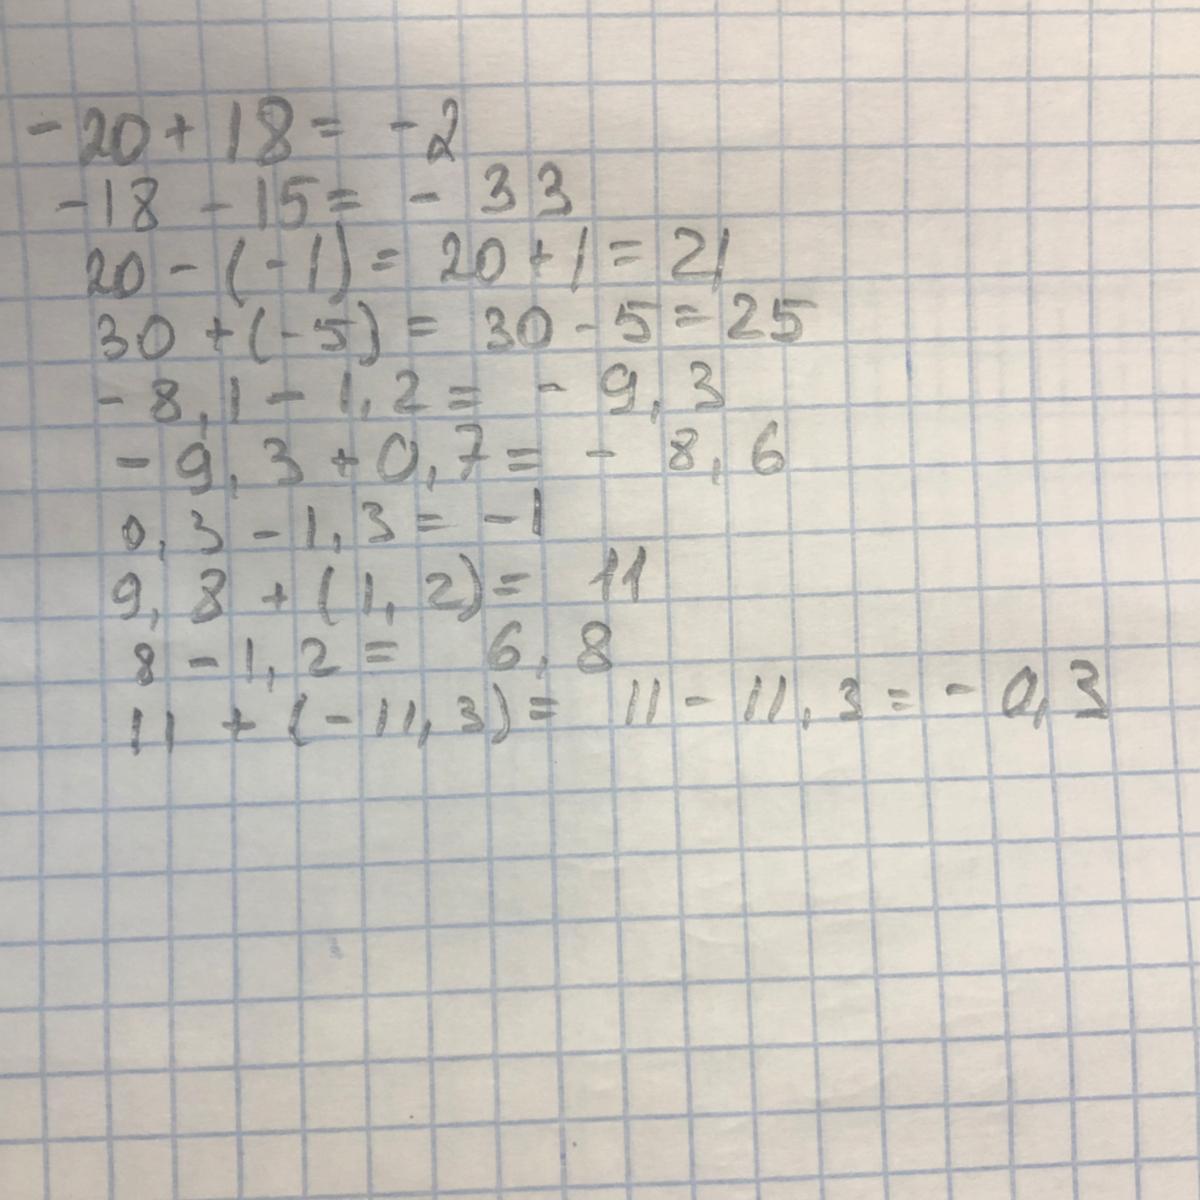 -20 + 18 = -2
-18 - 15 = - 33
20 - (-1) = 20 + 1 = 21
30 + (-5) = 30 - 5 = 25
- 8,1 - 1,2 = - 9,3
- 9,3 + 0,7 = - 8,6
0,3 - 1,3 = -1
9,8 + (1,2) = 11
8 - 1,2 = 6,8
11 + (-11,3) = 11 - 11,3 = - 0,3